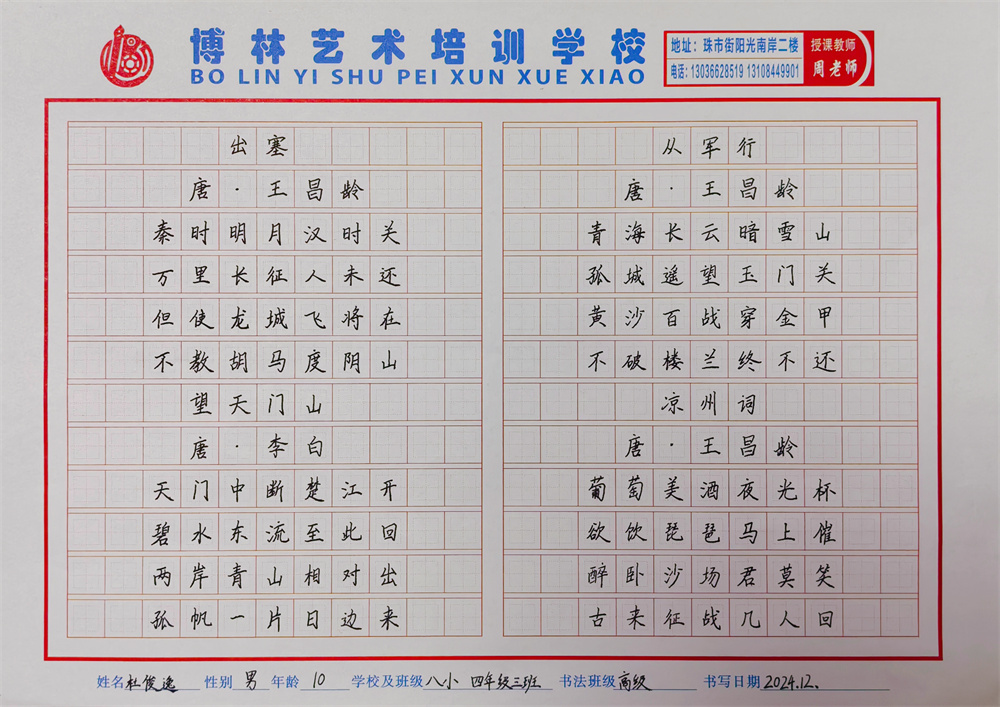 博林艺术培训学校
BO LIN YI SHU PEI XUN XUE XIAO
地址：珠市街阳光南岸二楼
电话：13036628519 13108449901
授课教师
周老师
出塞
唐·王昌龄
秦时明月汉时关
万里长征人未还
但使龙城飞将在
不教胡马度阴山
望天门山
唐·李白
天门中断楚江开
碧水东流至此回
两岸青山相对出
孤帆一片日边来
从军行
唐·王昌龄
青海长云暗雪山
孤城遥望玉门关
黄沙百战穿金甲
不破楼兰终不还
凉州词
唐·王昌龄
葡萄美酒夜光杯
欲饮琵琶马上催
醉卧沙场君莫笑
古来征战几人回
姓名 杜俊逸 性别 男 年龄 10 学校及班级 八小 四年级三班 书法班级 高级 书写日期 2024.12.